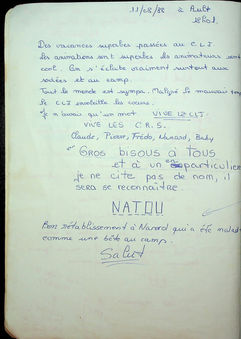 11/08/88 à Ault
18h01.
Des vacances superbes passées au C.L.J
les animations sont superbes les animateurs sont
cool. On s'éclate vraiment surtout aux
soirées et au camp.
Tout le monde est sympa. Malgré le mauvais temps
le CLJ ensoleille les coeurs.
Je n'aurai qu'un mot. VIVE LE CLJ.
VIVE LES C.R.S.
Claude, Pierre, Frédo, Nanard, Baby
GROS BISOUS À TOUS
et à un en particulier
je ne cite pas de nom, il
sera se reconnaître.
NATOU
Bon rétablissement à Nanard qui a été malade
comme une bête au camp.
Salut